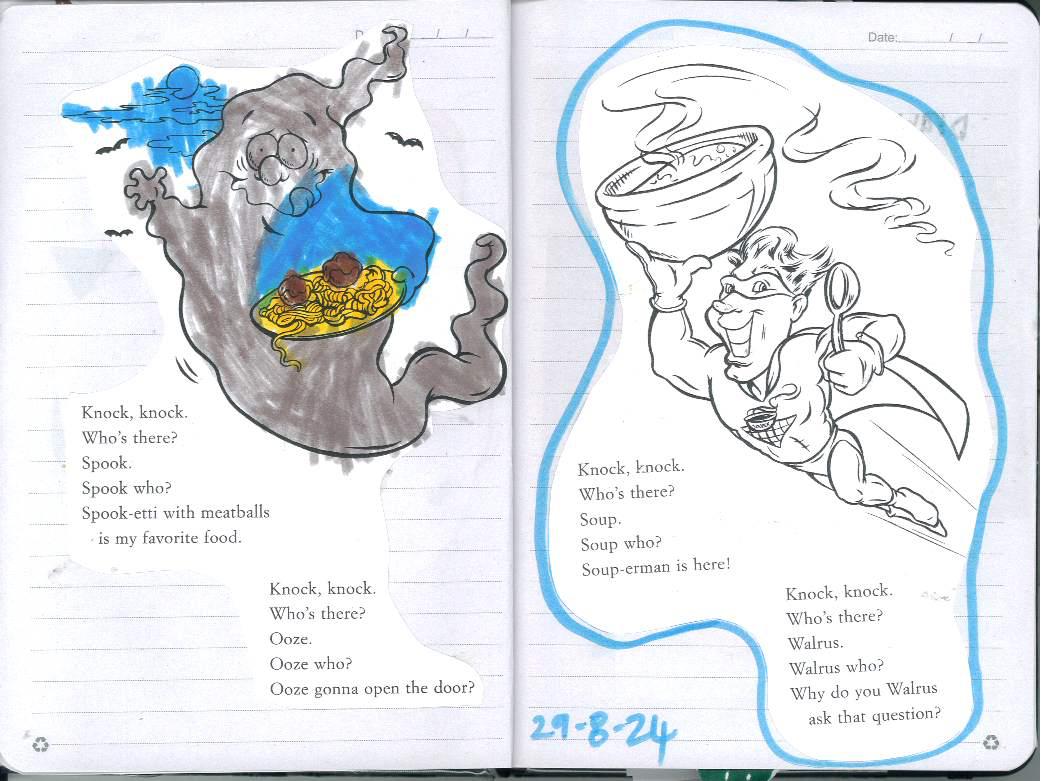 Knock, knock.
Who's there?
Spook.
Spook who?
Spook-etti with meatballs
is my favorite food.
Knock, knock.
Who's there?
Ooze.
Ooze who?
Ooze gonna open the door?
Date: / /
Knock, knock.
Who's there?
Soup.
Soup who?
Soup-erman is here!
Knock, knock.
Who's there?
Walrus.
Walrus who?
Why do you Walrus
ask that question?
29-8-24